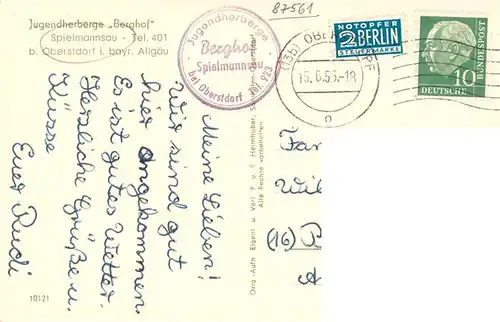 87561
Jugendherberge „Berghof"
Spielmannsau - Tel. 401
b. Oberstdorf i. bayr. Allgäu
Jugendherberge
Berghof
Spielmannsau
bei Oberstdorf Tel. 923
NOTOPFER
2 BERLIN
STEUERMARKE
(13b) OBE
15. 6. 56.-18
DEUTSCHE
BUNDESPOST
10
Meine Lieben!
Wir sind gut
hier angekommen.
Es ist gutes Wetter.
Herzliche Grüße u.
Küsse
Euer Rudi
Fam
Wil
(16)
Orig.-Aufn. Eigent. u. Verl. F. u. E. Heimhuber,
Alle Rechte vorbehalten
10121